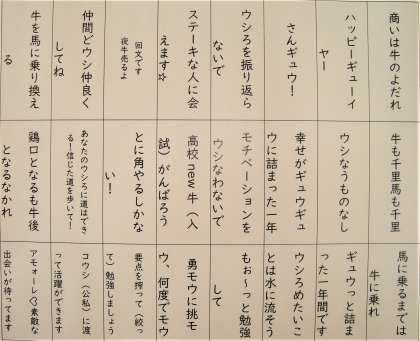 商いは牛のよだれ
ハッピーギューイ
ヤー
さんギュウ！
ウシろを振り返ら
ないで
ステーキな人に会
えます☆
回文です
夜牛売るよ
仲間どウシ仲良く
してね
牛を馬に乗り換え
る
牛も千里馬も千里
ウシなうものなし
幸せがギュウギュ
ウに詰まった一年
モチベーションを
ウシなわないで
高校new牛（入
試）がんばろう
とに角やるしかな
い！
あなたのウシろに道はでき
る！信じた道を歩いて！
鶏口となるも牛後
となるなかれ
馬に乗るまでは
牛に乗れ
ギュウっと詰ま
った一年間です
ウシろめたいこ
とは水に流そう
もぉ～っと勉強
して
勇モウに挑モ
ウ、何度でモウ
要点を搾って（絞っ
て）勉強しましょう
コウシ（公私）に渡
って活躍ができます
アモォーレ♡素敵な
出会いが待ってます